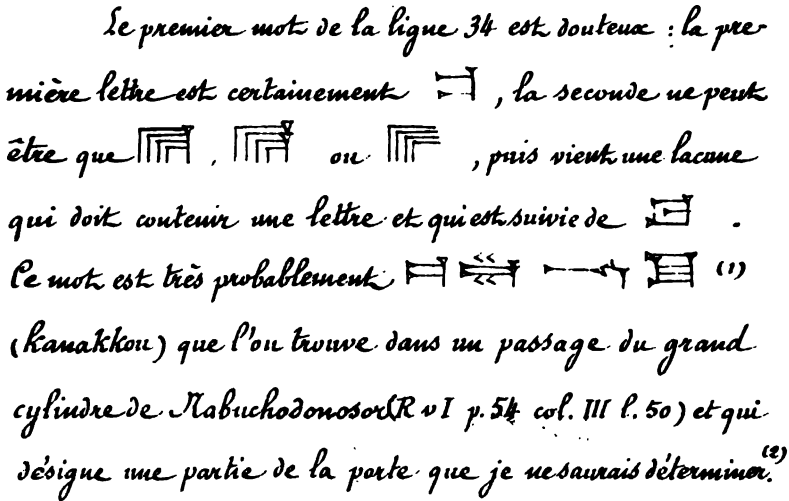 Le premier mot de la ligne 34 est douteux : la pre-
mière lettre est certainement , la seconde ne peut
être que , ou , puis vient une lacune
qui doit contenir une lettre et qui est suivie de .
Ce mot est très probablement (1)
(kanakkou) que l'on trouve dans un passage du grand
cylindre de Nabuchodonosor (R v I p. 54 col. III l. 50) et qui
désigne une partie de la porte que je ne saurais déterminer.(2)